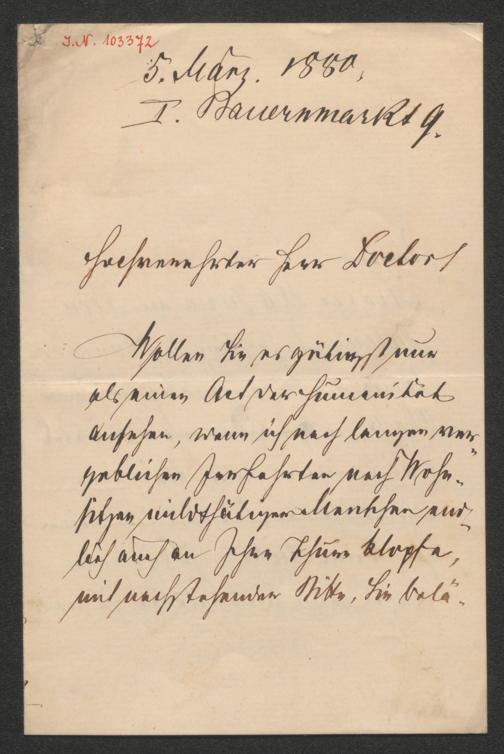 I.N. 103372
5. März. 1880.
I. Bauernmarkt 9.
Hochverehrter Herr Doctor!
Wollen Sie es gütigst nur
als einen Act der Humanität
ansehen, wenn ich nach langen ver-
geblichen Irrfahrten nach Wohn-
sitzen mildthätiger Menschen end-
lich auch an Ihre Thüre klopfe,
mit nachstehender Bitte, Sie belä-